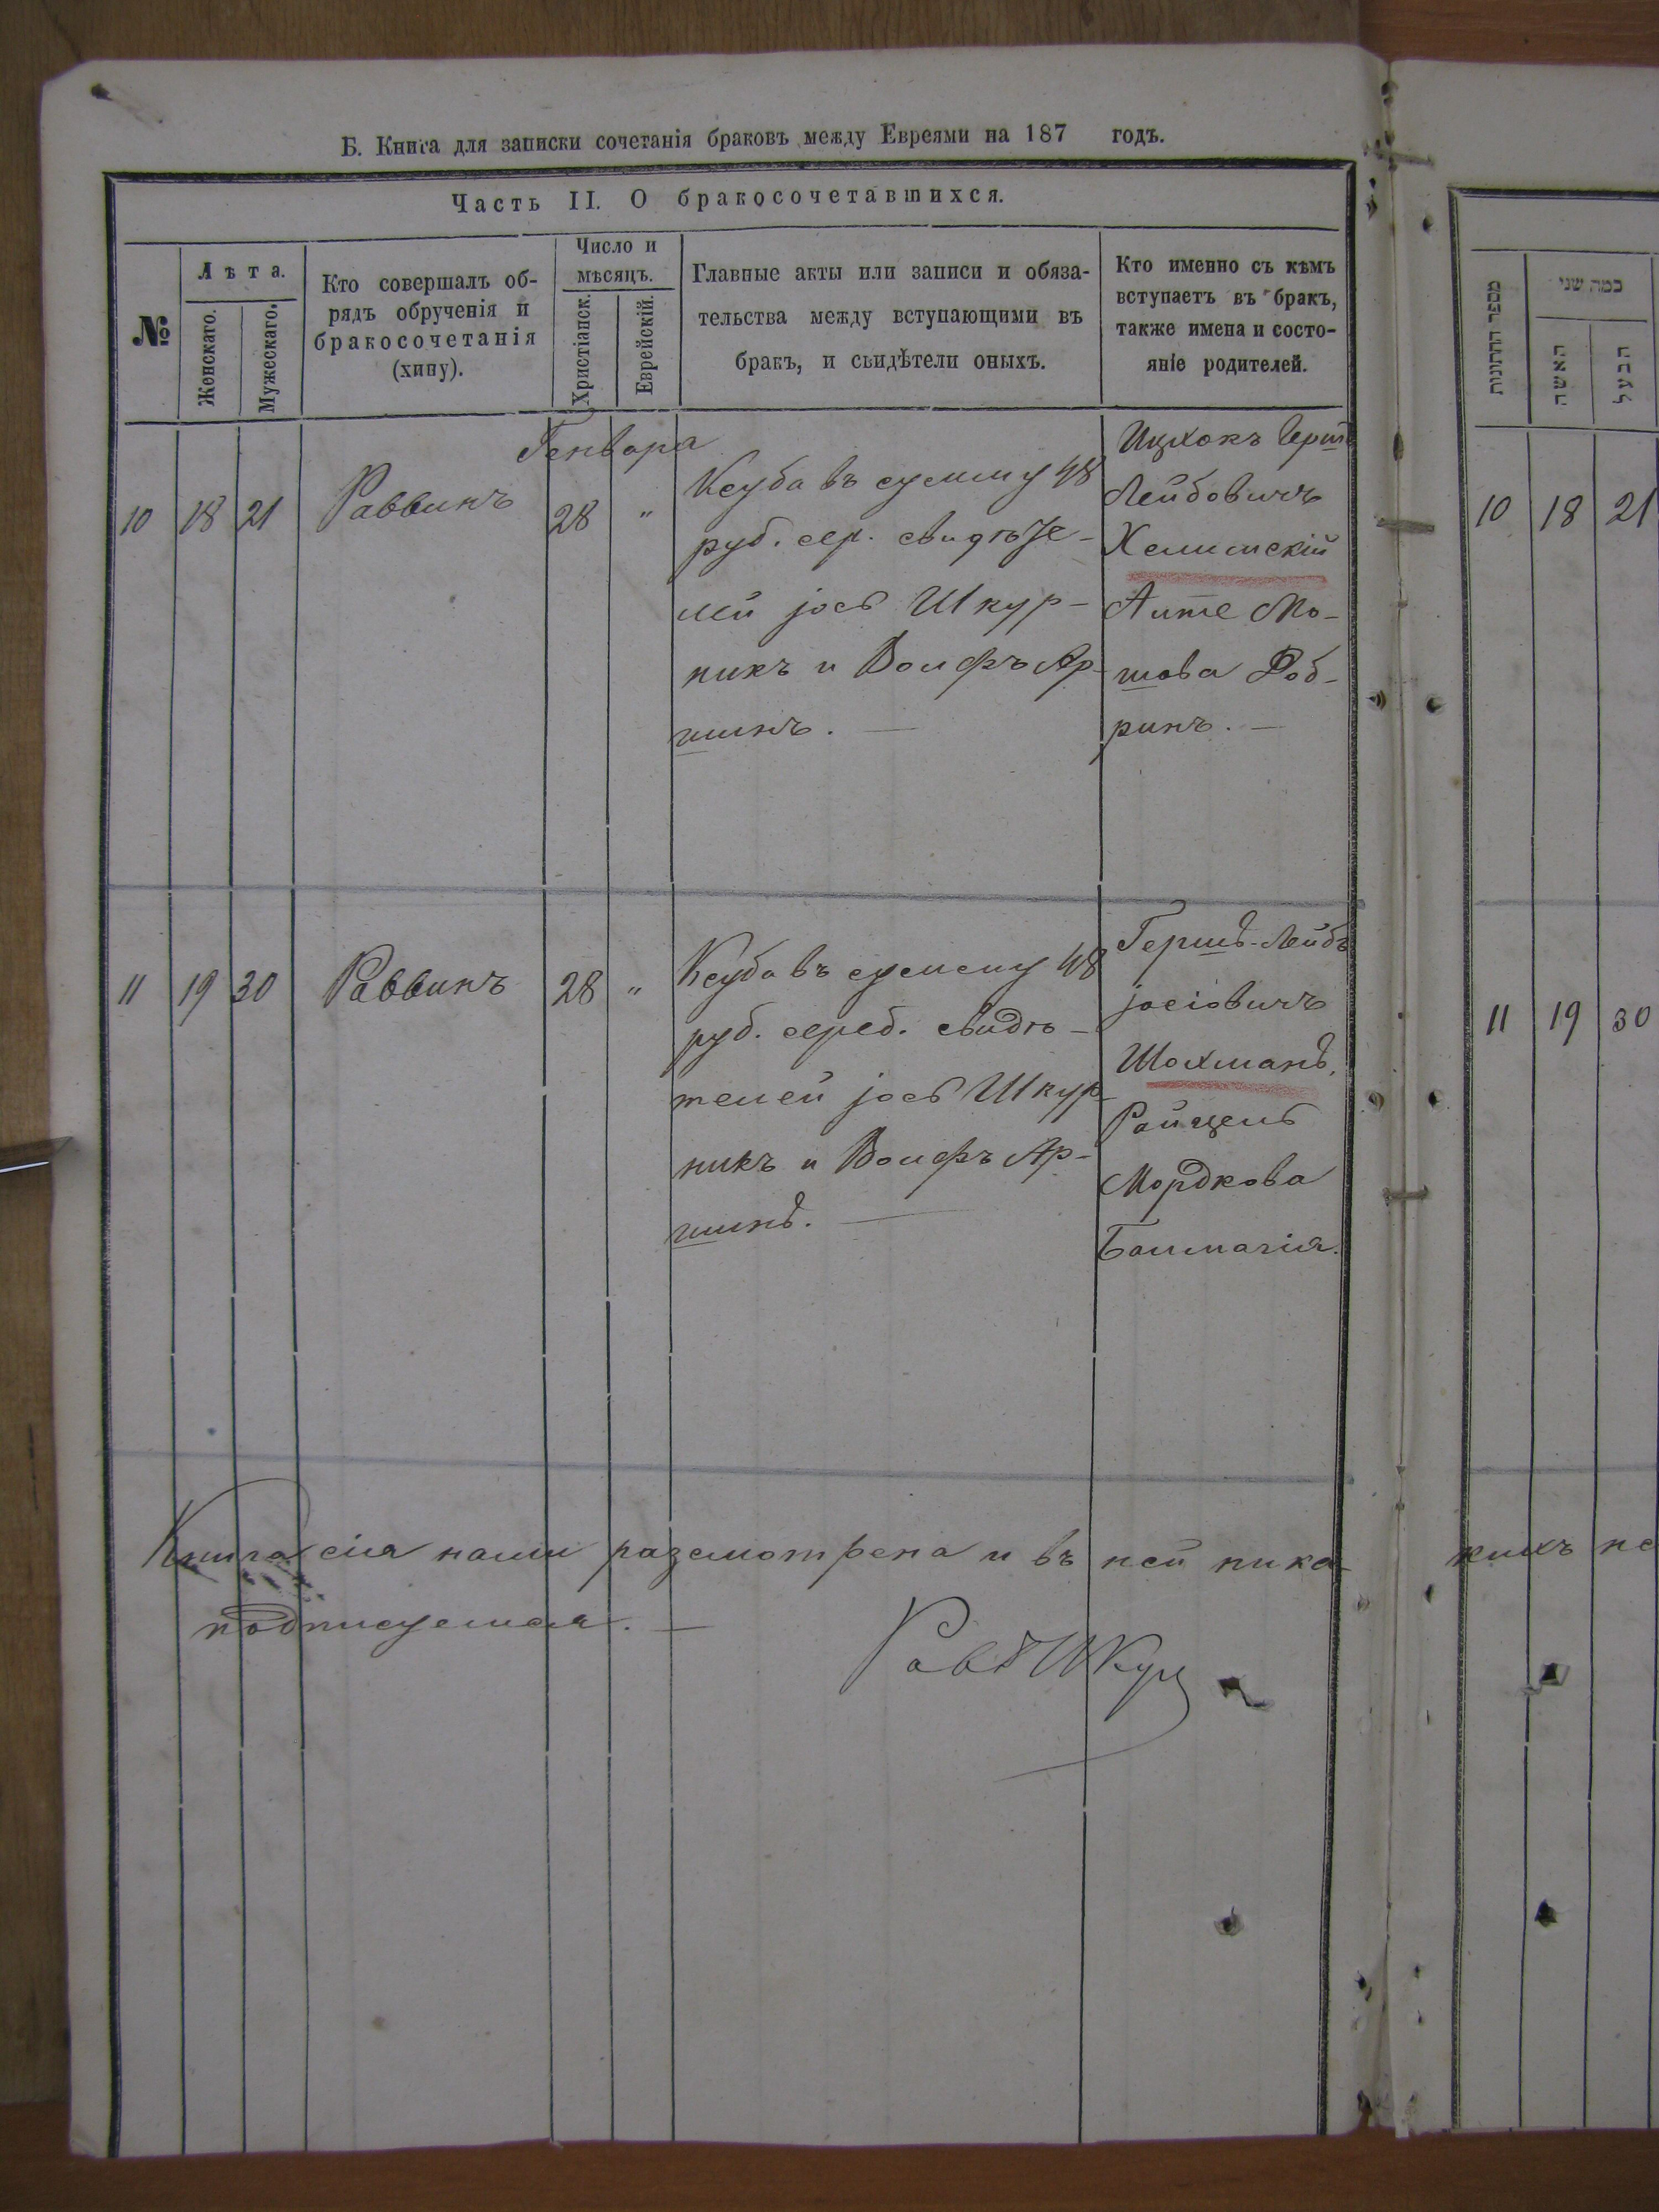 Б. Книга для записки сочетанія браковъ между Евреями на 187 годъ.
Часть II. О бракосочетавшихся.
№
Лѣта.
Женскаго.
Мужескаго.
Кто совершалъ об-
рядъ обрученія и
бракосочетанія
(хипу).
Число и
мѣсяцъ.
Христіанск.
Еврейскій.
Главные акты или записи и обяза-
тельства между вступающими въ
бракъ, и свидѣтели оныхъ.
Кто именно съ кѣмъ
вступаетъ въ бракъ,
также имена и состо-
яніе родителей.
Генвара
10 18 21 Раввинъ 28 "
Ксуба въ сумму 48
руб. сер. свидѣте-
лей јосъ Шкур-
никъ и Волфъ Ар-
шинъ. —
Ицхокъ Герш
Лейбовичъ
Хелимскій
Аите Мо-
шова Доб-
ринъ. —
11 19 30 Раввинъ 28 "
Ксуба въ сумму 48
руб. сереб. свидѣ-
телей јосъ Шкур-
никъ и Волфъ Ар-
шинъ. —
Гершъ-Лейбъ
јосіовичъ
Шохманъ,
Райцель
Мордкова
Книга сія нами разсмотрена и въ ней ника-
подписуемся. —
Рав Шкур
מספר החתונות
כמה שני
האשה
הבעל
10 18 21
11 19 30
кихъ не